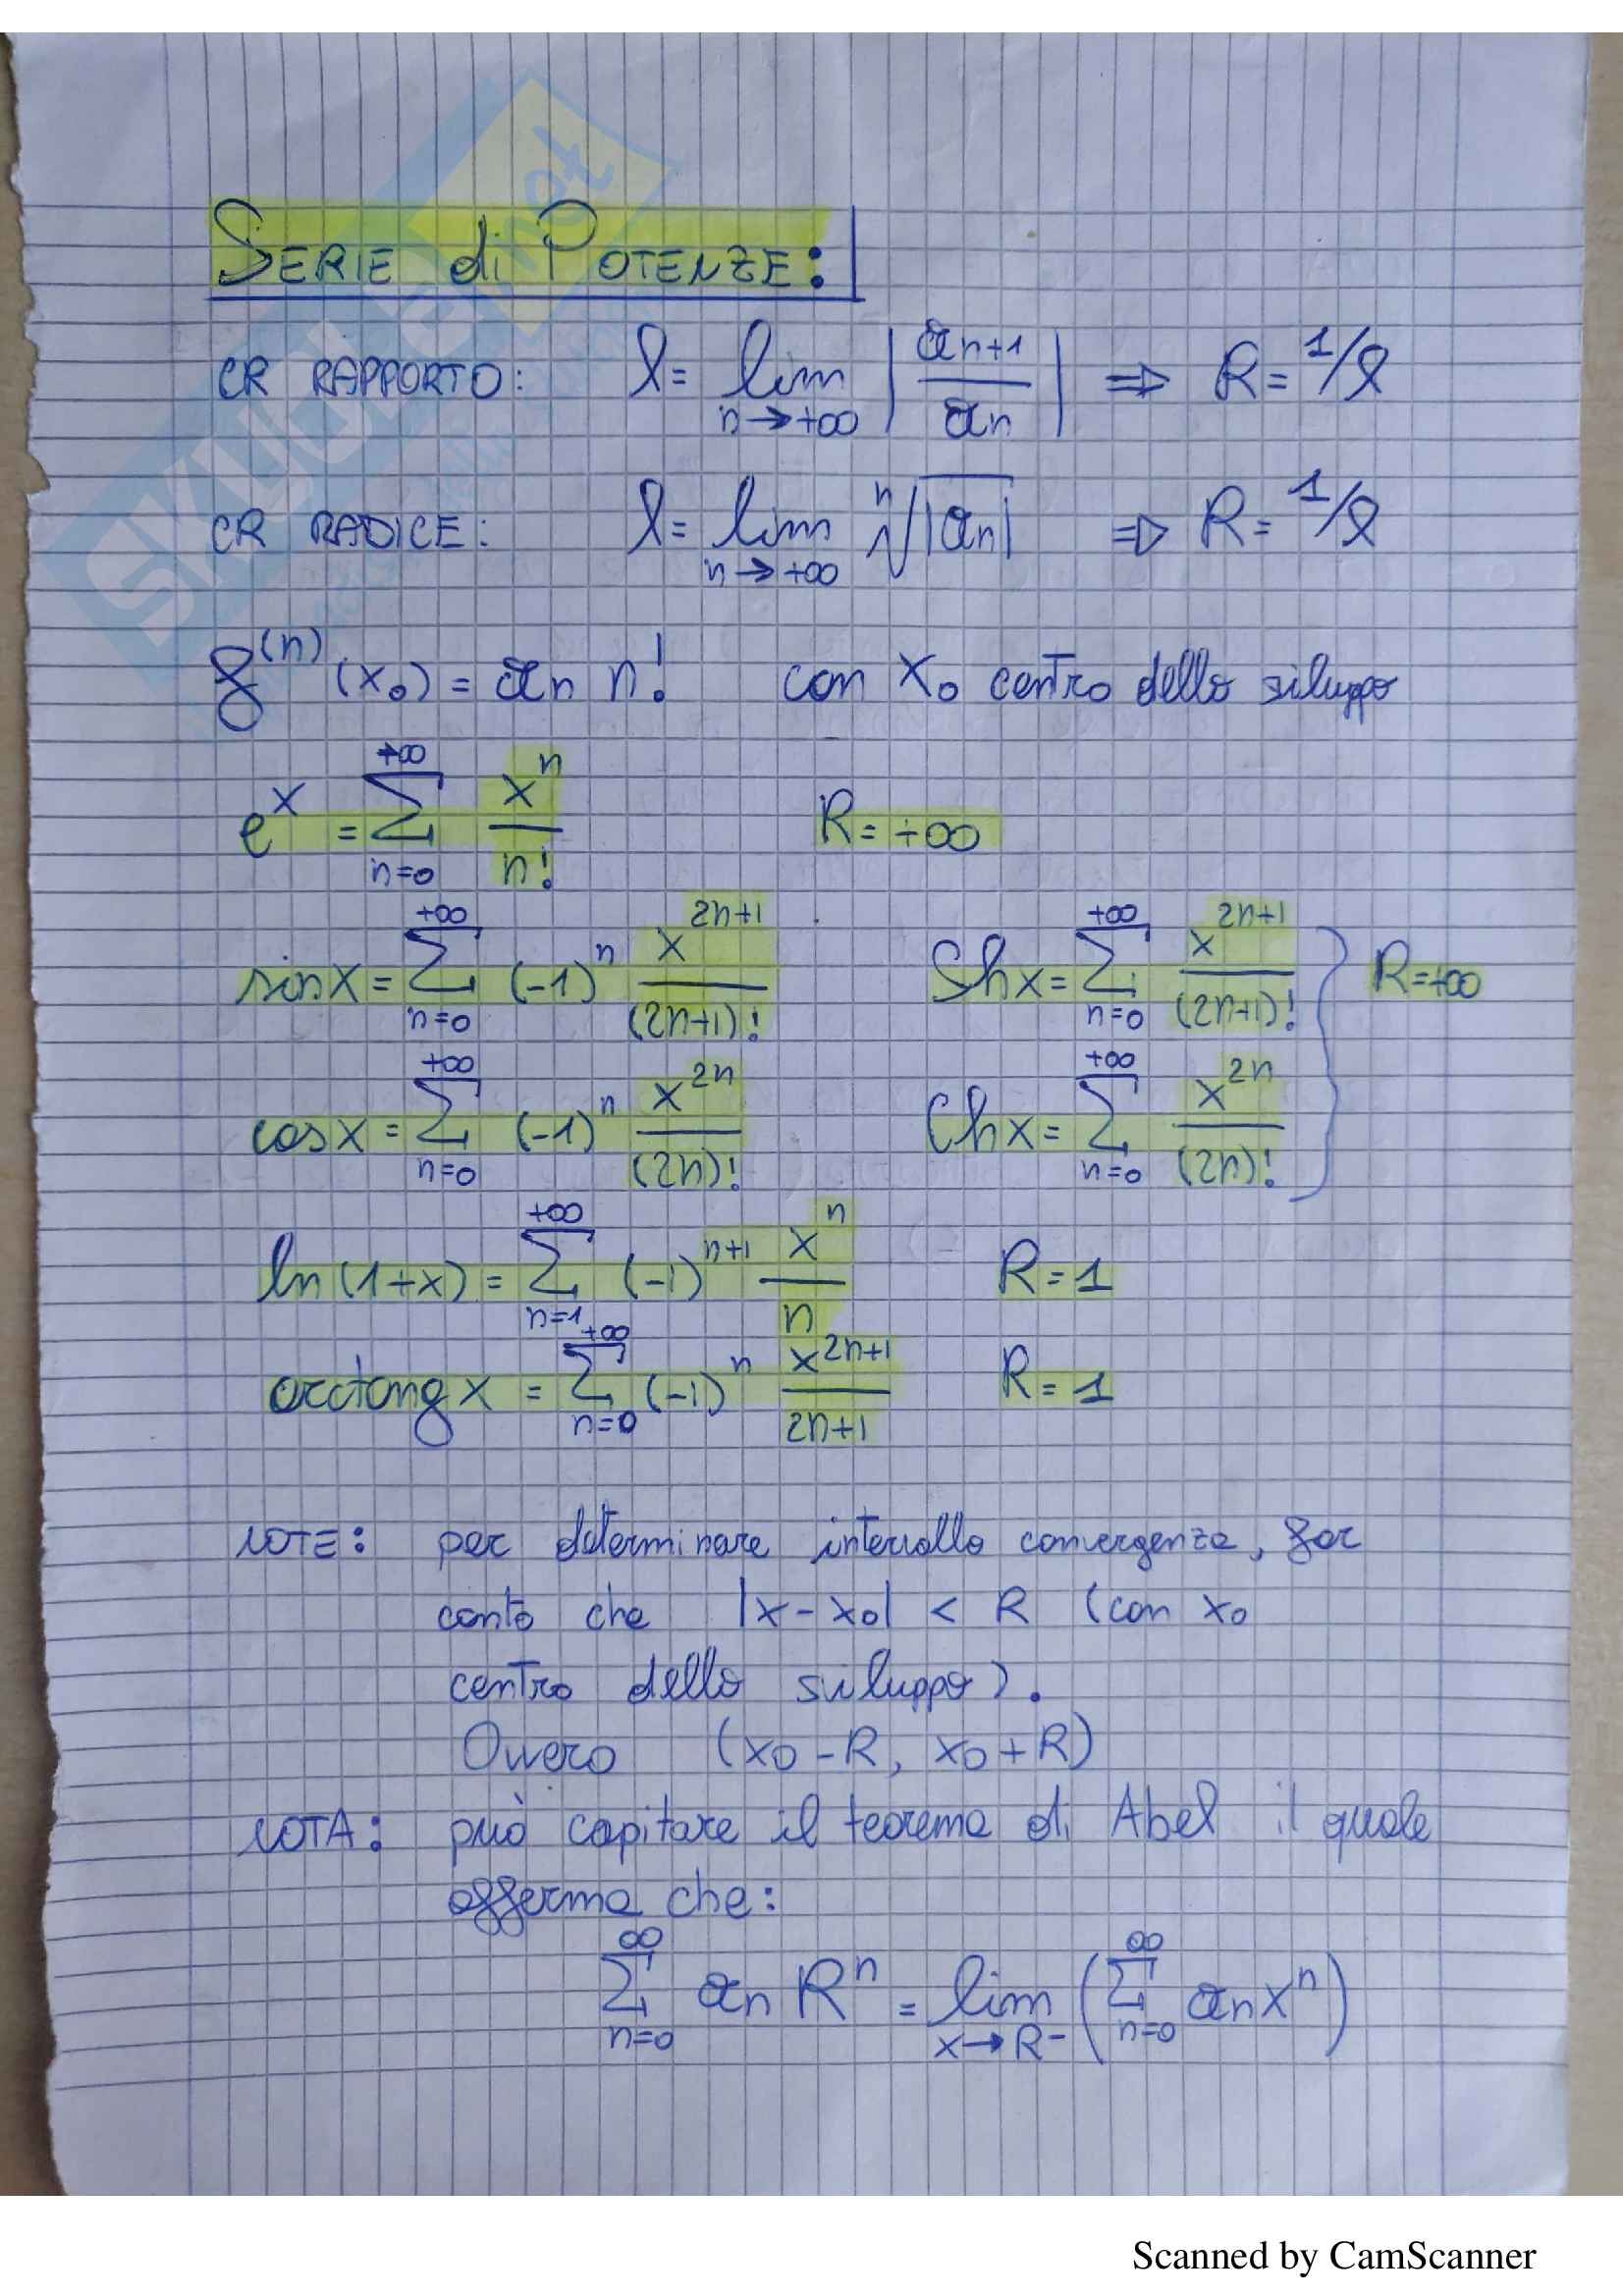 SERIE di POTENZE:
CR RAPPORTO: l = lim n→+∞ |an+1 / an| ⇒ R = 1/l
CR RADICE: l = lim n→+∞ ⁿ√|an| ⇒ R = 1/l
f⁽ⁿ⁾(x₀) = an n! con x₀ centro dello siluppo
eˣ = Σ n=0 +∞ xⁿ / n! R = +∞
sin x = Σ n=0 +∞ (-1)ⁿ x²ⁿ⁺¹ / (2n+1)! Sh x = Σ n=0 +∞ x²ⁿ⁺¹ / (2n+1)! R = +∞
cos x = Σ n=0 +∞ (-1)ⁿ x²ⁿ / (2n)! Ch x = Σ n=0 +∞ x²ⁿ / (2n)!
ln(1+x) = Σ n=1 +∞ (-1)ⁿ⁺¹ xⁿ / n R = 1
arctang x = Σ n=0 +∞ (-1)ⁿ x²ⁿ⁺¹ / 2n+1 R = 1
NOTE: per determinare intervallo convergenza, far
conto che |x - x₀| < R (con x₀
centro dello sviluppo).
Ovvero (x₀ - R, x₀ + R)
NOTA: può capitare il teorema di Abel il quale
afferma che:
Σ n=0 ∞ an Rⁿ = lim x→R⁻ (Σ n=0 ∞ an xⁿ)
Scanned by CamScanner